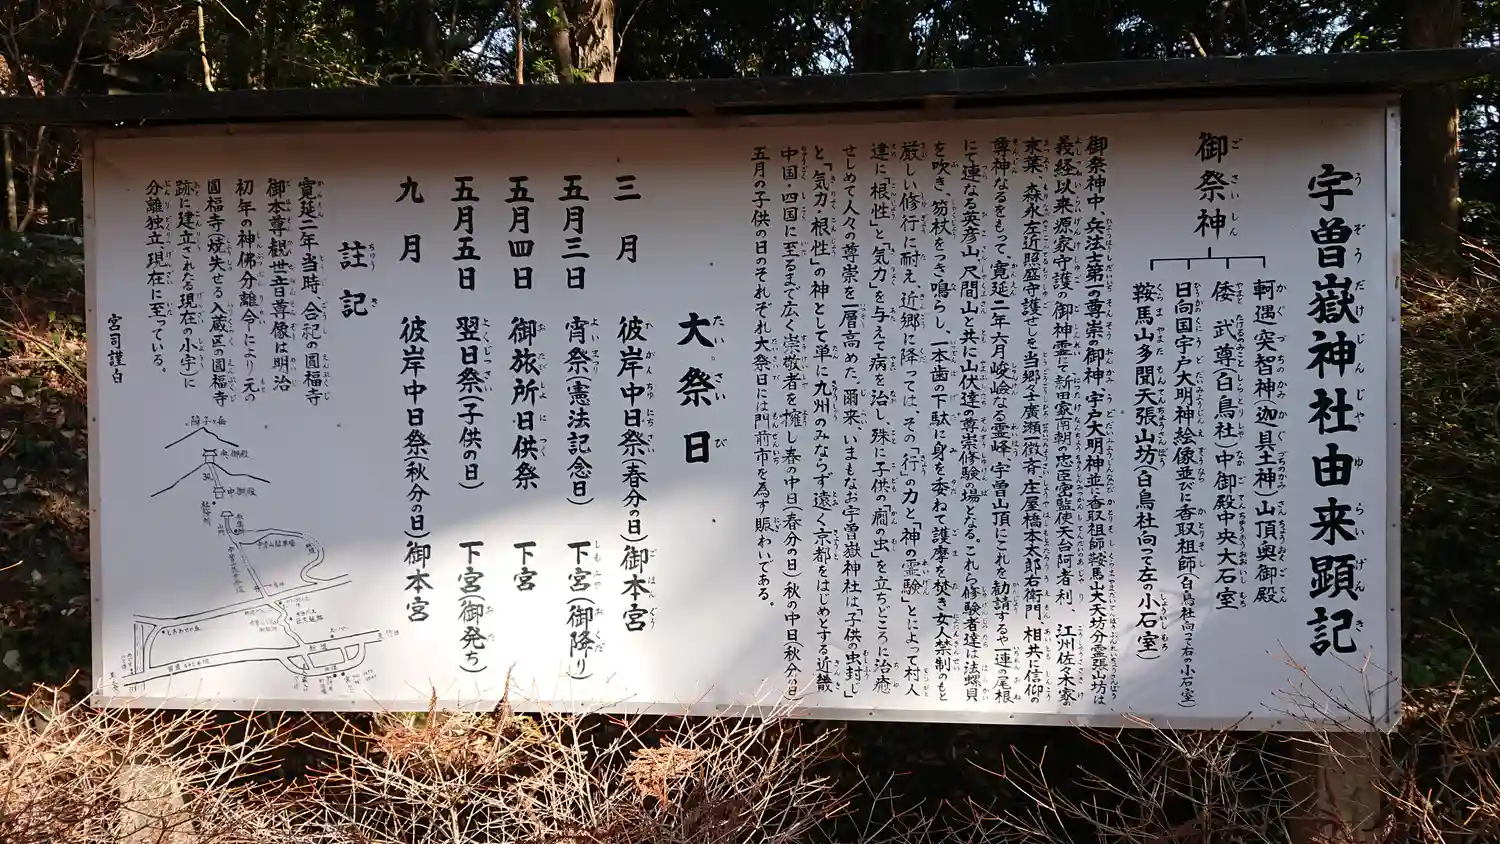 宇曽嶽神社由来顕記
御祭神
軻遇突智神(迦具土神)山頂奥御殿
倭武尊(白鳥社)中御殿中央大石室
日向国宇戸大明神絵像並びに香取祖師(白鳥社向って右の小石室)
鞍馬山多聞天張山坊(白鳥社向って左の小石室)
御祭神中、兵法士第一の尊崇の御神、宇戸大明神並に香取祖師鞍馬山大天坊分霊張山坊は
義経以来源家守護の御神霊にて新田家南朝の忠臣密監使天台阿者利、江州佐々木家の
末葉、森永左近照盛守護せしを当郷士廣瀬一徴斉、庄屋橋本太郎右衛門、相共に信仰の
尊神なるをもって、寛延二年六月峻嶮なる霊峰、宇曽山頂にこれを勧請するや一連の尾根
にて連なる英彦山、尺間山と共に山伏達の尊崇修験の場となる。これら修験者達は法螺貝
を吹き、笏杖をつき鳴らし、一本歯の下駄に身を委ねて護摩を焚き女人禁制のもと
厳しい修行に耐え、近郷に降っては、その「行」の力と「神の霊験」とによって村人
達に「根性」と「気力」を与えて病を治し、殊に子供の「癇の虫」を立ちどころに治癒
せしめて人々の尊崇を一層高めた。爾来、いまもなお宇曽嶽神社は「子供の虫封じ」
と「気力・根性」の神として単に九州のみならず遠く京都をはじめとする近畿
中国・四国に至るまで広く崇敬者を擁し春の中日(春分の日)秋の中日(秋分の日)
五月の子供の日のそれぞれ大祭日には門前市を為す賑わいである。
大祭日
三月 彼岸中日祭(春分の日)御本宮
五月三日 宵祭(憲法記念日)下宮(御降り)
五月四日 御旅所日供祭 下宮
五月五日 翌日祭(子供の日) 下宮(御発ち)
九月 彼岸中日祭(秋分の日)御本宮
註記
寛延二年当時、合祀の圓福寺
御本尊観世音尊像は明治
初年の神佛分離令により元の
圓福寺(焼失せる入蔵区の圓福寺
跡に建立された現在の小宇)に
分離独立、現在に至っている。
宮司謹白
奥御殿
中御殿